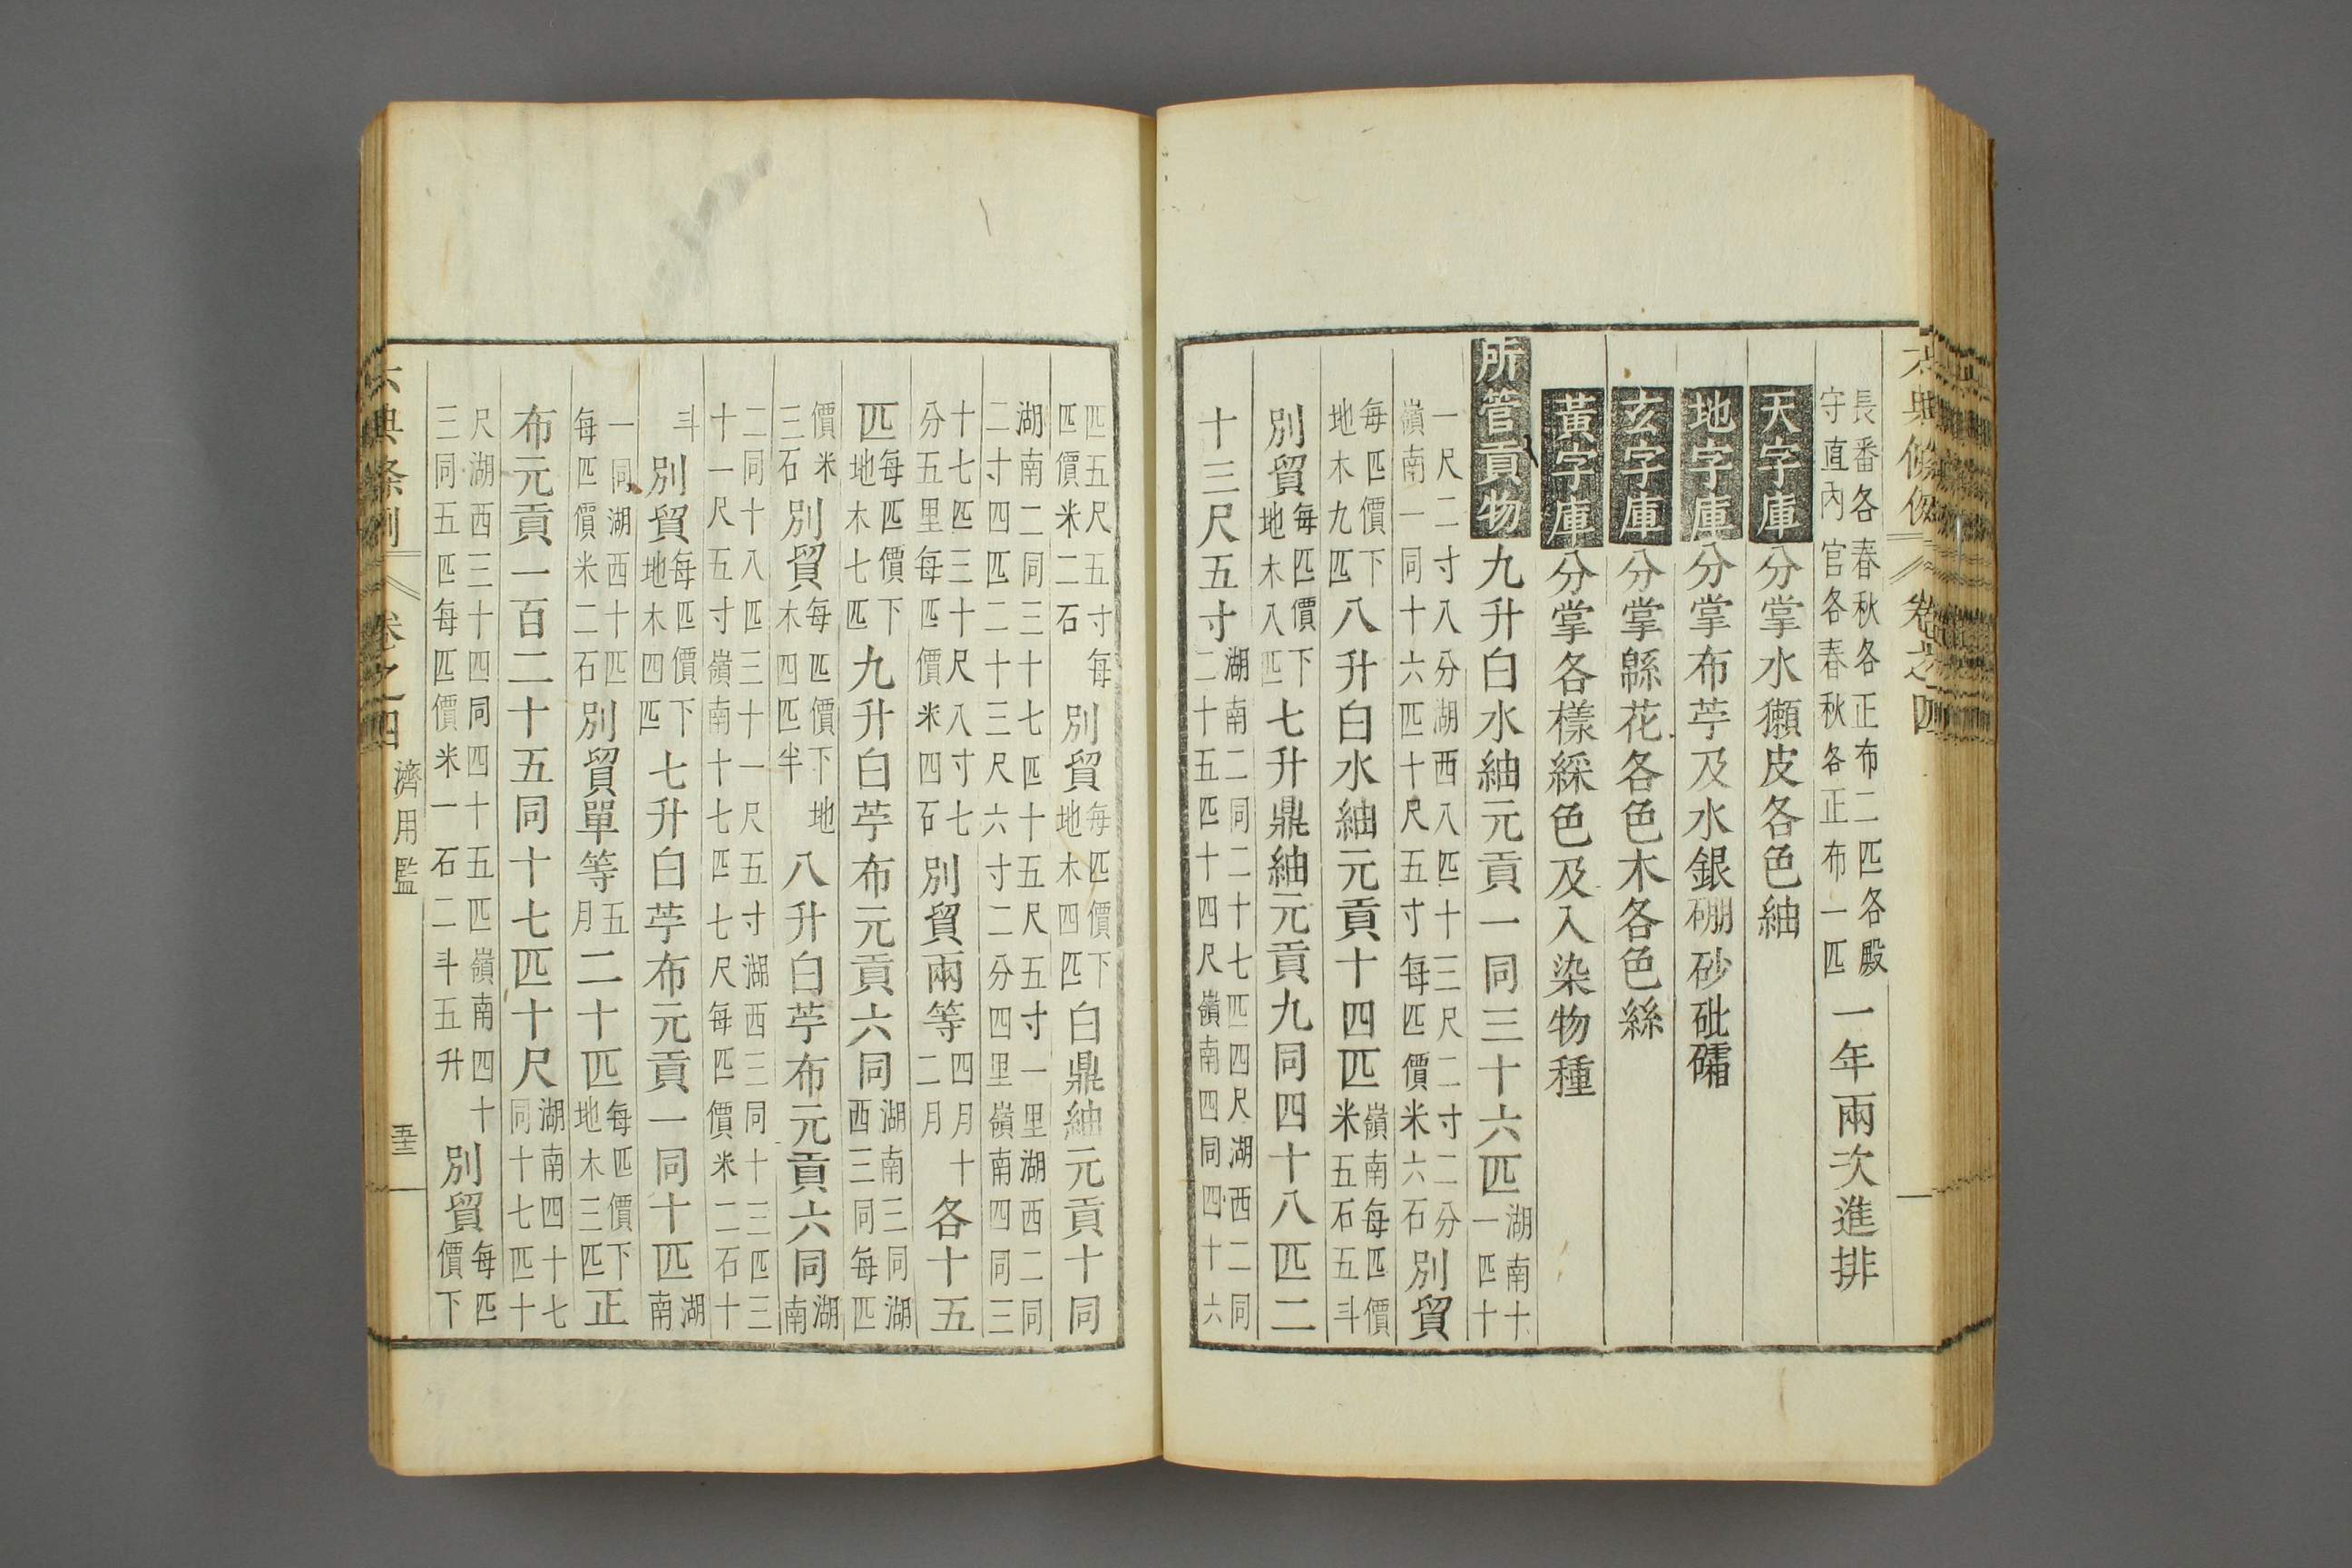 六典條例 卷之四
長番各春秋各正布二匹各殿守直內官各春秋各正布一匹一年兩次進排
天字庫分掌水獺皮各色紬
地字庫分掌布苧及水銀硼砂砒礵
玄字庫分掌緜花各色木各色絲
黃字庫分掌各樣綵色及入染物種
所管貢物九升白水紬元貢一同三十六匹湖南十一匹十
一尺二寸八分湖西八匹十三尺二寸二分嶺南一同十六匹十尺五寸每匹價米六石別貿
每匹價下地木九匹八升白水紬元貢十四匹嶺南每匹價米五石五斗
別貿每匹價下地木八匹七升鼎紬元貢九同四十八匹二
十三尺五寸湖南二同二十七匹四尺湖西二同二十五匹十四尺嶺南四同四十六
匹五尺五寸每匹價米二石別貿每匹價下地木四匹白鼎紬元貢十同
湖南二同三十七匹十五尺五寸一里湖西二同二寸四匹二十三尺六寸二分四里嶺南四同三
十七匹三十尺八寸七分五里每匹價米四石別貿兩等四月十二月各十五
匹每匹價下地木七匹九升白苧布元貢六同湖南三同湖西三同每匹
價米三石別貿每匹價下地木四匹半八升白苧布元貢六同湖南
二同十八匹三十一尺五寸湖西三同十三匹三十一尺五寸嶺南十七匹七尺每匹價米二石十
斗別貿每匹價下地木四匹七升白苧布元貢一同十匹湖南
一同湖西十匹每匹價米二石別貿單等五月二十匹每匹價下地木三匹正
布元貢一百二十五同十七匹十尺湖南四十七同十七匹十
尺湖西三十四同四十五匹嶺南四十三同五匹每匹價米一石二斗五升別貿每匹價下
六典條例 卷之四 濟用監 五十三